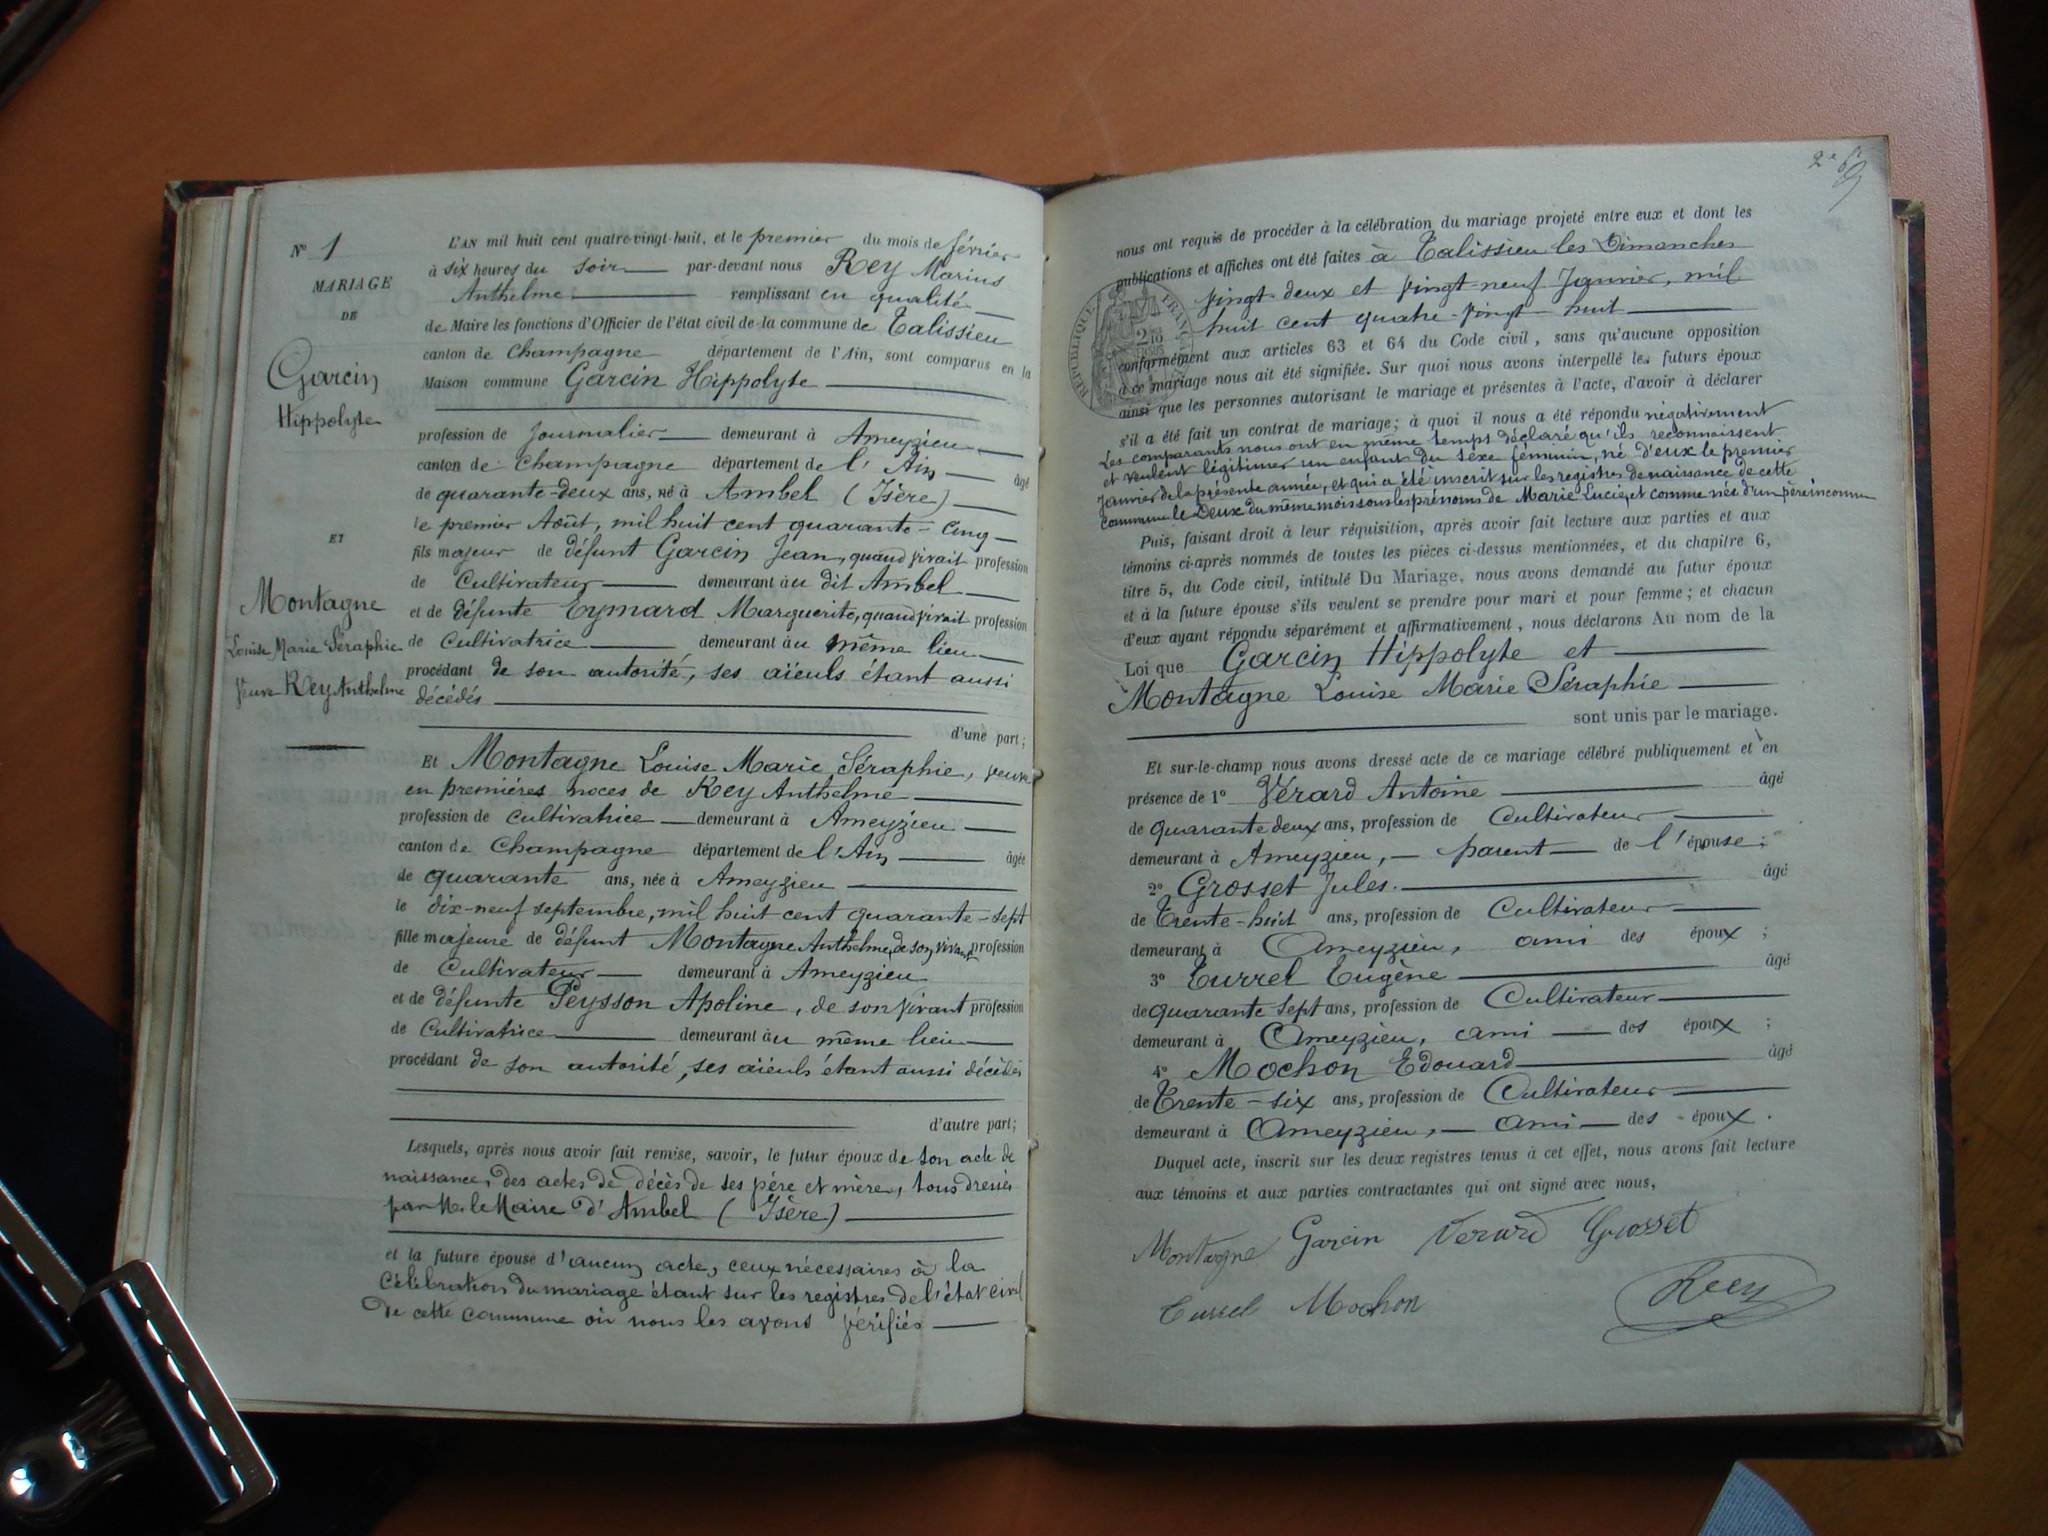 N° 1
MARIAGE
DE
Garcin
Hippolyte
ET
Montagne
Louise Marie Séraphie
veuve Rey Anthelme
L'AN mil huit cent quatre-vingt-huit, et le premier du mois de février
à six heures du soir par-devant nous Rey Marius
Anthelme remplissant en qualité
de Maire les fonctions d'Officier de l'état civil de la commune de Talissieu
canton de Champagne département de l'Ain, sont comparus en la
Maison commune Garcin Hippolyte
profession de Journalier demeurant à Ameyzieu
canton de Champagne département de l'Ain âgé
de quarante-deux ans, né à Ambel (Isère)
le premier Août, mil huit cent quarante-cinq
fils majeur de défunt Garcin Jean, quand vivait profession
de Cultivateur demeurant à u dit Ambel
et de défunte Eymard Marguerite, quand vivait profession
de Cultivatrice demeurant à u même lieu
procédant de son autorité, ses aïeuls étant aussi
décédés
d'une part;
Et Montagne Louise Marie Séraphie, veuve
en premières noces de Rey Anthelme
profession de cultivatrice demeurant à Ameyzieu
canton de Champagne département de l'Ain âgée
de quarante ans, née à Ameyzieu
le dix-neuf septembre, mil huit cent quarante-sept
fille majeure de défunt Montagne Anthelme, de son vivant profession
de Cultivateur demeurant à Ameyzieu
et de défunte Peysson Apoline, de son vivant profession
de Cultivatrice demeurant à u même lieu
procédant de son autorité, ses aïeuls étant aussi décédés
d'autre part;
Lesquels, après nous avoir fait remise, savoir, le futur époux de son acte de
naissance, des actes de décès de ses père et mère, tous dressés
par M. le Maire d'Ambel (Isère)
et la future épouse d'aucun acte, ceux nécessaires à la
célébration du mariage étant sur les registres de l'état civil
de cette commune où nous les avons vérifiés
nous ont requis de procéder à la célébration du mariage projeté entre eux et dont les
publications et affiches ont été faites à Talissieu les Dimanches
vingt-deux et vingt-neuf Janvier, mil
huit cent quatre-vingt-huit
RÉPUBLIQUE FRANC
conformément aux articles 63 et 64 du Code civil, sans qu'aucune opposition
à ce mariage nous ait été signifiée. Sur quoi nous avons interpellé les futurs époux
ainsi que les personnes autorisant le mariage et présentes à l'acte, d'avoir à déclarer
s'il a été fait un contrat de mariage; à quoi il nous a été répondu négativement
Les comparants nous ont en même temps déclaré qu'ils reconnaissent
et veulent légitimer un enfant du sexe féminin, né d'eux le premier
Janvier de la présente année, et qui a été inscrit sur les registres de naissance de cette
commune le Deux du même mois sous les prénoms de Marie Lucie, et comme née d'un père inconnu
Puis, faisant droit à leur réquisition, après avoir fait lecture aux parties et aux
témoins ci-après nommés de toutes les pièces ci-dessus mentionnées, et du chapitre 6,
titre 5, du Code civil, intitulé Du Mariage, nous avons demandé au futur époux
et à la future épouse s'ils veulent se prendre pour mari et pour femme; et chacun
d'eux ayant répondu séparément et affirmativement, nous déclarons Au nom de la
Loi que Garcin Hippolyte et
Montagne Louise Marie Séraphie
sont unis par le mariage.
Et sur-le-champ nous avons dressé acte de ce mariage célébré publiquement et en
présence de 1° Vérard Antoine âgé
de quarante deux ans, profession de Cultivateur
demeurant à Ameyzieu, parent de l'épouse;
2° Grosset Jules. âgé
de Trente-huit ans, profession de Cultivateur
demeurant à Ameyzieu, ami des époux;
3° Turrel Eugène âgé
de quarante sept ans, profession de Cultivateur
demeurant à Ameyzieu, ami des époux;
4° Mochon Edouard âgé
de Trente-six ans, profession de Cultivateur
demeurant à Ameyzieu, ami des époux.
Duquel acte, inscrit sur les deux registres tenus à cet effet, nous avons fait lecture
aux témoins et aux parties contractantes qui ont signé avec nous,
Montagne Garcin Verard Grosset
Turrel Mochon Rey